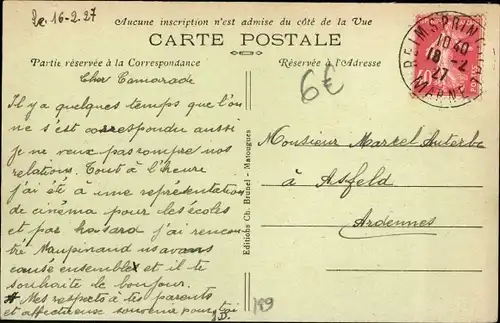 Le 16-2.27
Aucune inscription n'est admise du côté de la Vue
CARTE POSTALE
Partie réservée à la Correspondance
Réservée à l'Adresse
Cher Camarade
Il y a quelques temps que l'on
ne s'est correspondu aussi
je ne veux pas rompre nos
relations. Tout à l'heure
j'ai été à une représentation
de cinéma pour les écoles
et par hasard j'ai rencon
tré Maupinaud us avons
causé ensemble et il te
souhaite le bonjour.
Mes respects à tes parents
et affectueux souvenir pour toi
J.D.
Editions Ch. Brunel - Matougues
6€
Monsieur Marcel Auterbe
à Asfeld
Ardennes
189
REIMS PRINCIPAL
10 40
16 -2
27
MARNE
POSTES